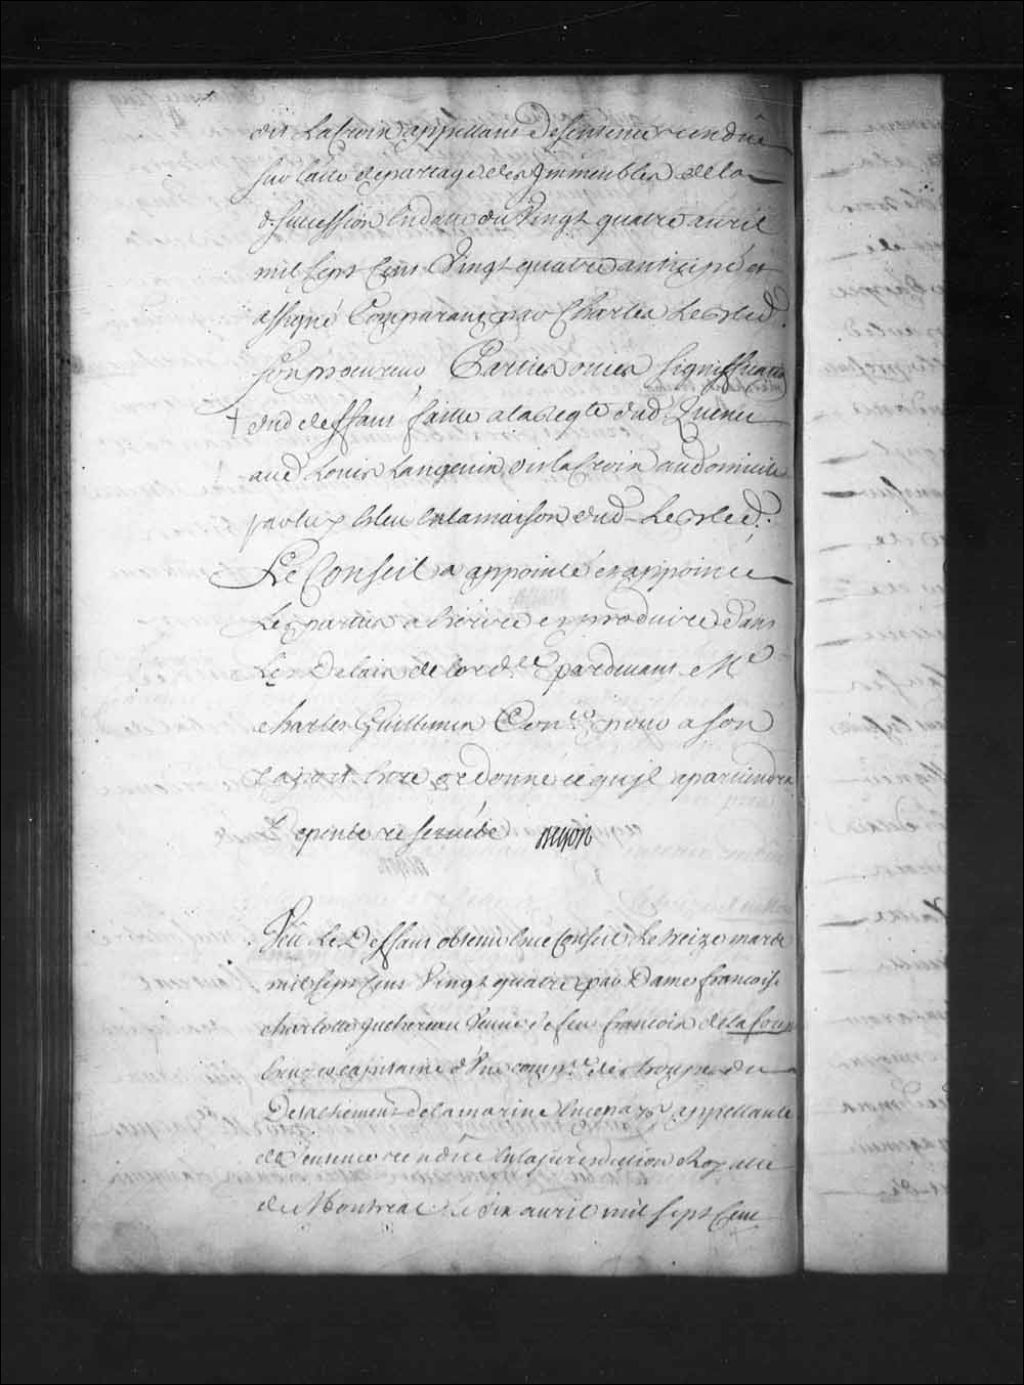 dit LaCroix appellant de sentence rendüe
sur lacte departage des Immeubles dela
d. succession Endatte du Vingt quatre avril
mil sept Cens Vingt quatre anticipé et
assigné Comparant par Charles Lebled.
son procureur Parties ouies signiffication
dud deffaut faitte a la reqte dud
aud Louis Langevin dit laCroix audomicile
par luy Eleu En lamaison dud Lebled.
Le Conseil a appointé et appointe
Les parties a Ecrire et produire dans
Les Delais de lord.ce pardevant Me
charles Guillimin Con.er pour a son
raport Estre ordonné ce qu'jl apartiendra
depens reservés Begon
Veu Le Deffaut obtenu En ce Conseil Le treize mars
mil sept Cens Vingt quatre par Dame francoise
charlotte Juchereau Veuve de feu francois de la forest
Vivant capitaine d'Une comp.ie des troupes du
Detachement de la marine En ce pays appellante
de Sentence rendüe En la jurisdiction Royalle
de Montreal le dix avril mil sept Cens